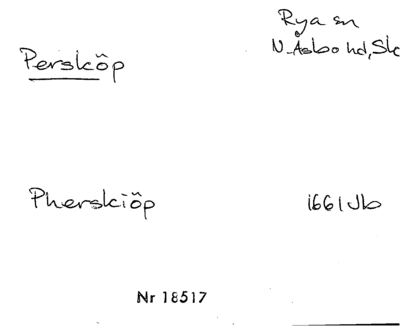 Rya sn
Persköp
N. Åsbo hd, Sk
Pherskiöp
1661 Jb
Nr 18517